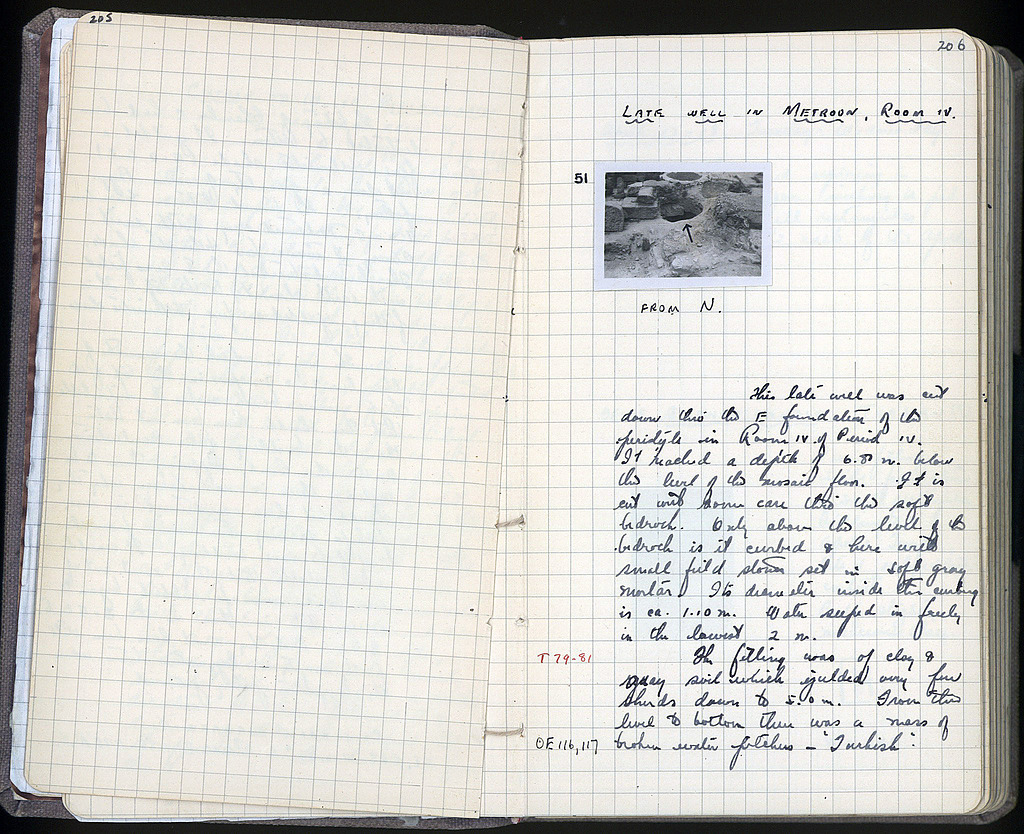 205
206
LATE WELL IN METROON, ROOM IV.
51
FROM N.
This late well was cut
down thro the E foundation of the
peristyle in Room IV of Period IV.
It reached a depth of 6.80 m. below
the level of the mosaic floor. It is
cut with some care thro the soft
bedrock. Only above the level of the
bedrock is it curbed & here with
small field stones set in soft gray
mortar. Its diameter inside the curbing
is ca. 1.10 m. Water seeped in freely
in the lowest 2 m.
T 79-81
The filling was of clay &
gray soil which yielded very few
sherds down to 5.0 m. From this
level to bottom there was a mass of
OE 116, 117
broken water pitchers – "Turkish".